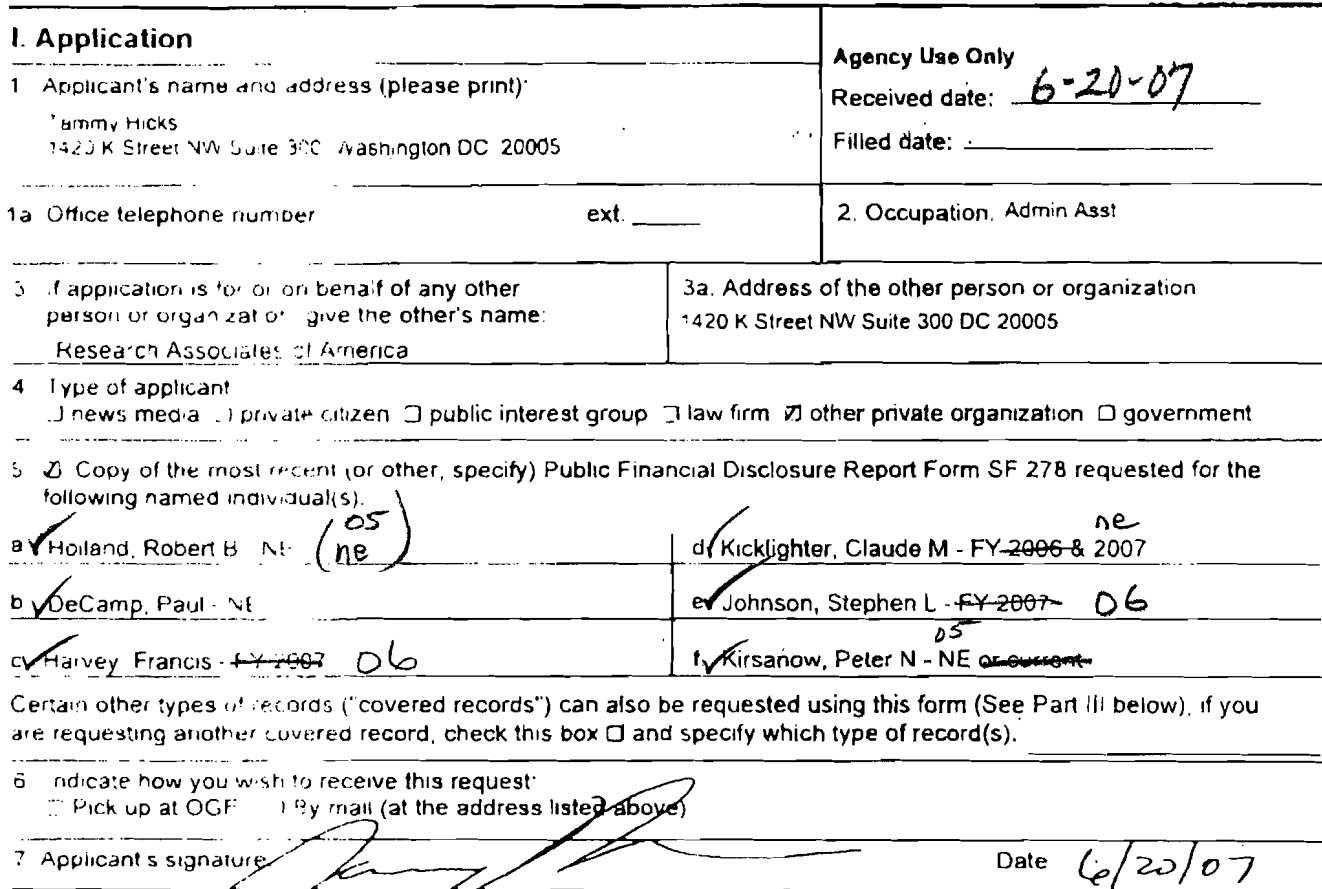 I. Application
Agency Use Only
Received date: 6-20-07
Filled date:
1 Applicant's name and address (please print):
Tammy Hicks
1420 K Street NW Suite 300 Washington DC 20005
1a Office telephone number ext.
2. Occupation. Admin Asst
3 If application is for or on behalf of any other
person or organization give the other's name:
Research Associates of America
3a. Address of the other person or organization
1420 K Street NW Suite 300 DC 20005
4 Type of applicant
news media private citizen ☐ public interest group ☐ law firm ☑ other private organization ☐ government
5 ☑ Copy of the most recent (or other, specify) Public Financial Disclosure Report Form SF 278 requested for the
following named individual(s).
a ✓ Holland, Robert B - NE (05 ne)
d ✓ Kicklighter, Claude M - FY 2006 & 2007 ne
b ✓ DeCamp, Paul - NE
e ✓ Johnson, Stephen L - FY 2007 06
c ✓ Harvey Francis - FY 2007 06
f ✓ Kirsanow, Peter N - NE or current 05
Certain other types of records ("covered records") can also be requested using this form (See Part III below), if you
are requesting another covered record, check this box ☐ and specify which type of record(s).
6 Indicate how you wish to receive this request:
☐ Pick up at OGE ☐ By mail (at the address listed above)
7 Applicant's signature
Date 6/20/07